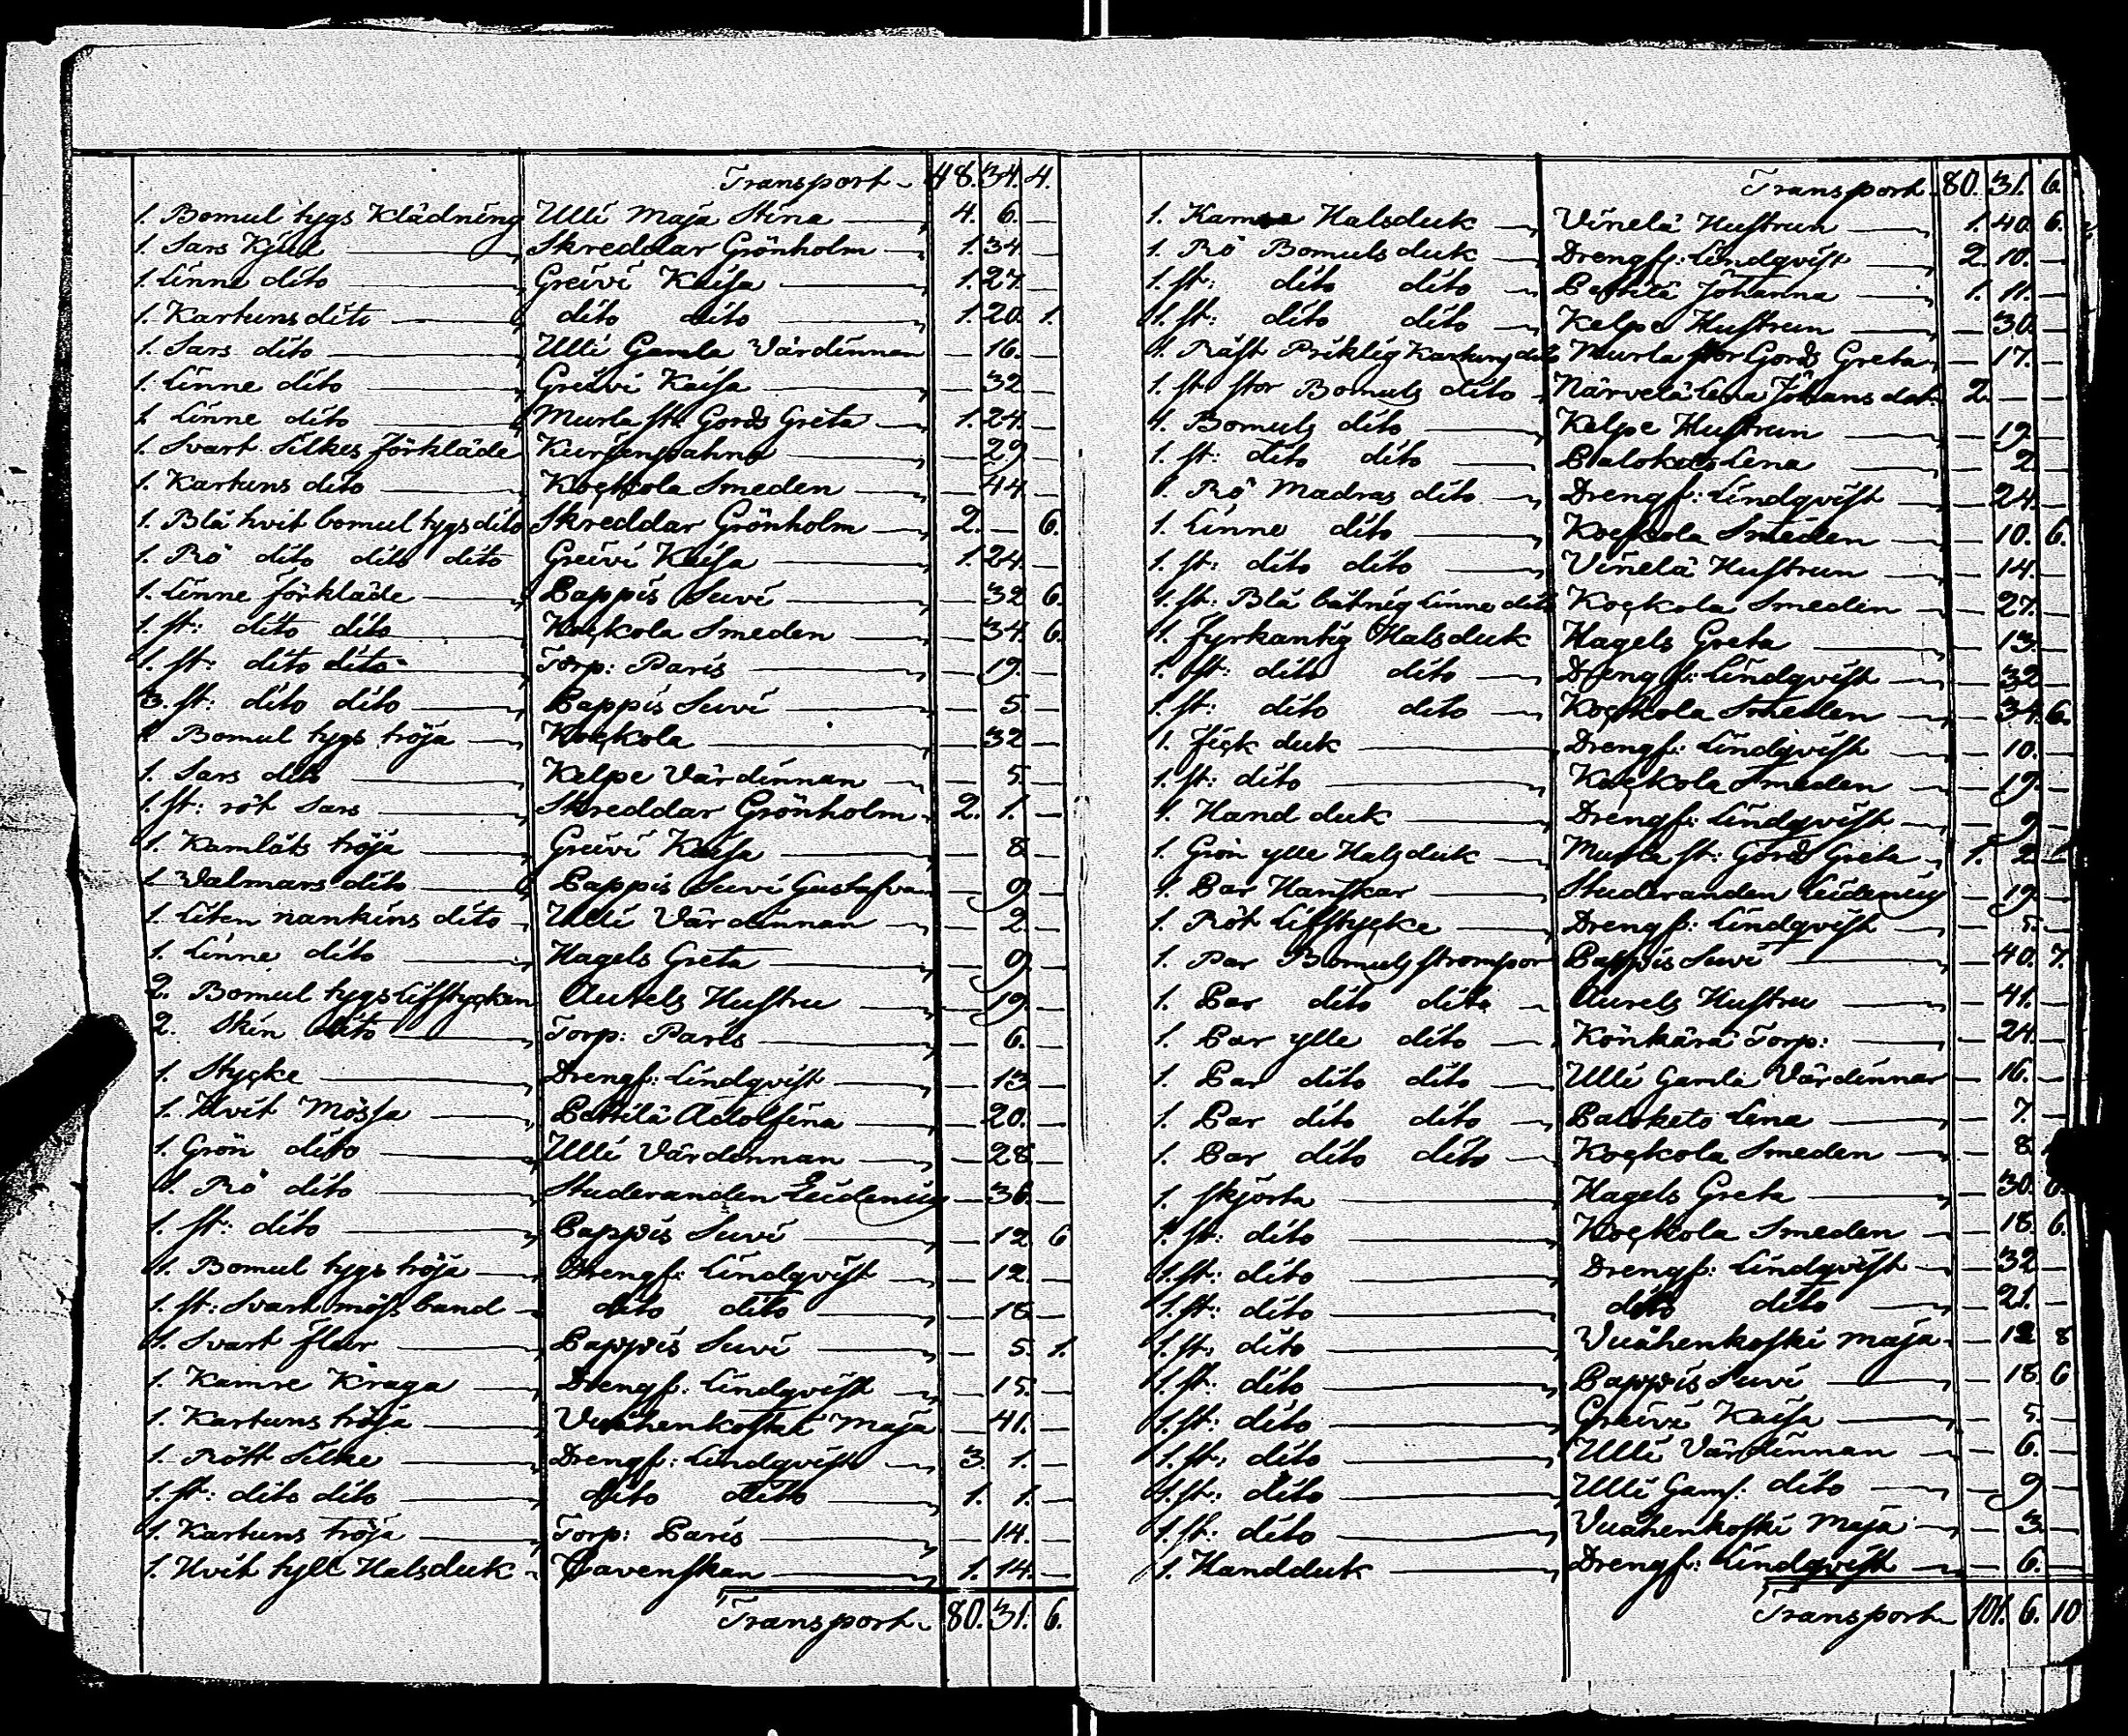 Transport 48. 34. 4.
1. Bomul tygs Klädning Ulli Maja Stina 4. 6. —
1. Sars Kjul Skreddar Grönholm 1. 34. —
1. Linne dito Greivi Kaisa 1. 27. —
1. Kartuns dito dito dito 1. 20. 1.
1. Sars dito Ulli Gamla Värdinnan — 16. —
1. Linne dito Greivi Kaisa — 32 —
1. Linne dito Murla st: Gords Greta 1. 24. —
1. Svart Silkes förkläde — 29 —
1. Kartuns dito Kockola Smeden — 44 —
1. Blå hvit bomul tygs dito Skreddar Grönholm 2. — 6.
1. Rö dito dito dito Greivi Kaisa 1. 24. —
1. Linne förkläde Pappis Suvi — 32 6.
1. st: dito dito Kockola Smeden — 34. 6.
1. st: dito dito Torp: Paris — 19. —
3. st: dito dito Pappis Suvi — 5 —
1 Bomul tygs tröja Kockola — 32 —
1. Sars dito Kelpe Värdinnan — 5. —
1. st: röt Sars Skreddar Grönholm 2. 1. —
1. Kamlåts tröja Greivi Kaisa — 8 —
1. Valmars dito Pappis Suvi — 9. —
1. Liten nankins dito Ulli Värdinnan — 2. —
1. Linne dito Hagels Greta — 9. —
2. Bomul tygs Lifstycken Aurels Hustru — 19. —
2. Skin dito Torp: Paris — 6. —
1. Stycke Drengf: Lindqvist — 13. —
1. Hvit Mössa Pettilä Adolfina — 20. —
1. Grön dito Ulli Värdinnan — 28. —
1. Rö dito Studeranden Leidenius — 36. —
1. st: dito Pappis Suvi — 12. 6
1. Bomul tygs tröja Drengf: Lindqvist — 12. —
1. st: Svart möss band dito dito — 18. —
1. Svart flor Pappis Suvi — 5. 1.
1. Kamre Kraga Drengf: Lindqvist — 15. —
1. Kartuns tröja Vuähenkoski Maja — 41. —
1. Rött Silke Drengf: Lindqvist 3. 1. —
1. st: dito dito dito dito 1. 1. —
1. Kartuns tröja Torp: Paris — 14. —
1. Hvit tyll Halsduk 1. 14. —
Transport 80. 31. 6.
Transport 80. 31. 6.
1. Halsduk Vinelä Hustrun 1. 40. 6.
1. Rö Bomuls duk Drengf: Lindqvist 2. 10. —
1. st: dito dito Pettilä Johanna 1. 11. —
1. st: dito dito Kelpe Hustrun — 30. —
1. Priklig Kartuns dito Murla stor Gords Greta — 17. —
1. st stor Bomuls dito Närvelä Lena Johans dot. 2. — —
1. Bomuls dito Kelpe Hustrun — 19. —
1. st: dito dito Paloketo Lena — 2. —
1. Rö Madras dito Drengf: Lindqvist — 24. —
1. Linne dito Kockola Smeden — 10. 6.
1. st: dito dito Vinelä Hustrun — 14. —
1. st: Blå Linne dito Kockola Smeden — 27. —
1. fyrkantig Halsduk Hagels Greta — 13. —
1. st: dito dito Drengf: Lindqvist — 32 —
1. st: dito dito Kockola Smeden — 34. 6.
1. fick duk Drengf: Lindqvist — 10. —
1. st: dito Kockola Smeden — 19. —
1. Hand duk Drengf: Lindqvist — 9 —
1. Grön ylle Halsduk Murla st: Gords Greta 1. 2
1. Par Hanskar Studeranden Leidenius — 19. —
1. Röt Lifstycke Drengf: Lindqvist — 5. —
1. Par Bomuls strompor Pappis Suvi — 40. 7.
1. Par dito dito Aurels Hustru — 41. —
1. Par ylle dito Könkärä Torp: — 24. —
1. Par dito dito Ulli Gamla Värdinnan — 16. —
1. Par dito dito Paloketo Lena — 7. —
1. Par dito dito Kockola Smeden — 8.
1. Skjorta Hagels Greta — 30.
1. st: dito Kockola Smeden — 18. 6.
1. st: dito Drengf: Lindqvist — 32 —
1. st: dito dito dito — 21. —
1. st: dito Vuähenkoski Maja — 12 8
1. st: dito Pappis Suvi — 18. 6
1. st: dito Greivi Kaisa — 5. —
1. st: dito Ulli Värdinnan — 6. —
1. st: dito Ulli Gaml. dito — 9 —
1. st: dito Vuähenkoski Maja — 3 —
1. Handduk Drengf: Lindqvist — 6. —
Transport 101. 6. 10